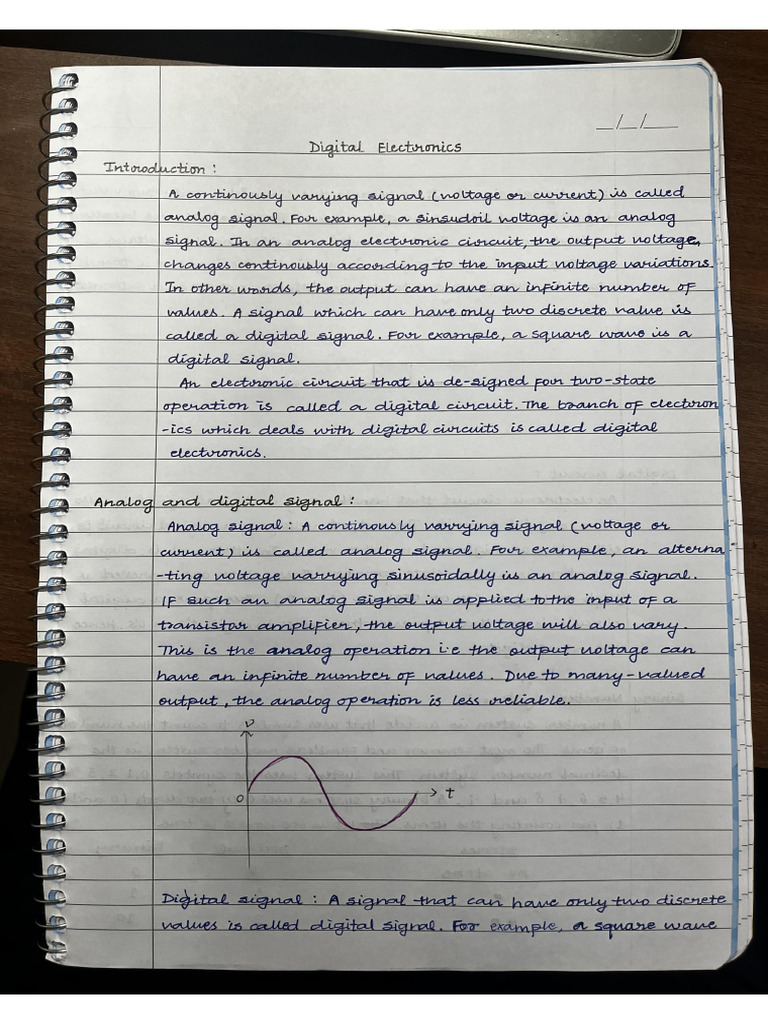 _/_/__
Digital Electronics
Introduction :
A continously varying signal (voltage or current) is called
analog signal. For example, a sinsudoil voltage is an analog
signal. In an analog electronic circuit, the output voltage,
changes continously according to the input voltage variations.
In other words, the output can have an infinite number of
values. A signal which can have only two discrete value is
called a digital signal. For example, a square wave is a
digital signal.
An electronic circuit that is de-signed for two-state
operation is called a digital circuit. The branch of electron
-ics which deals with digital circuits is called digital
electronics.
Analog and digital signal :
Analog signal : A continously varrying signal (voltage or
current) is called analog signal. For example, an alterna
-ting voltage varrying sinusoidally is an analog signal.
IF such an analog signal is applied to the input of a
transistor amplifier, the output voltage will also vary.
This is the analog operation i.e the output voltage can
have an infinite number of values. Due to many-valued
output, the analog operation is less reliable.
v
0
t
Digital signal : A signal that can have only two discrete
values is called digital signal. For example, a square wave